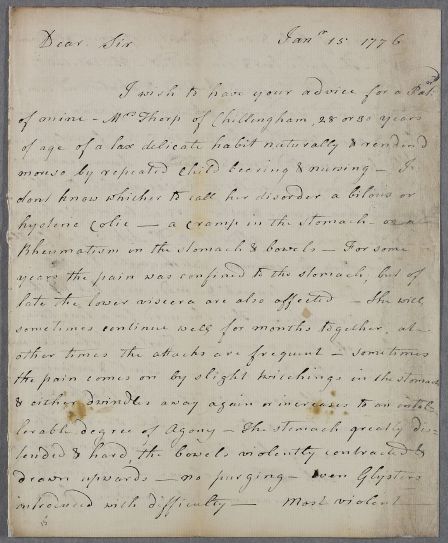 Dear Sir Janr 15 1776
I wish to have your advice for a Pat.
of mine - Mrs Thorp of Chillingham 28 or 30 years
of age of a lax delicate habit naturally & renderd
moreso by repeated child bearing & nursing - I
dont know whither to call her disorder a bilous or
hysteric Colic - a cramp in the stomach or a
Rheumatism in the stomach & bowels - For some
years the pain was confined to the stomach, but of
late the lower viscera are also affected - She will
sometimes continue well for months together, at
other times the attacks are frequent - sometimes
the pain comes on by slight twichings in the stomach
& either dwindles away again or increases to an intol=
lerable degree of Agony - the stomach greatly dis=
tended & hard, the bowels violently contracted &
drawn upwards - no purging - even Glysters
introduced with difficulty - Most violent